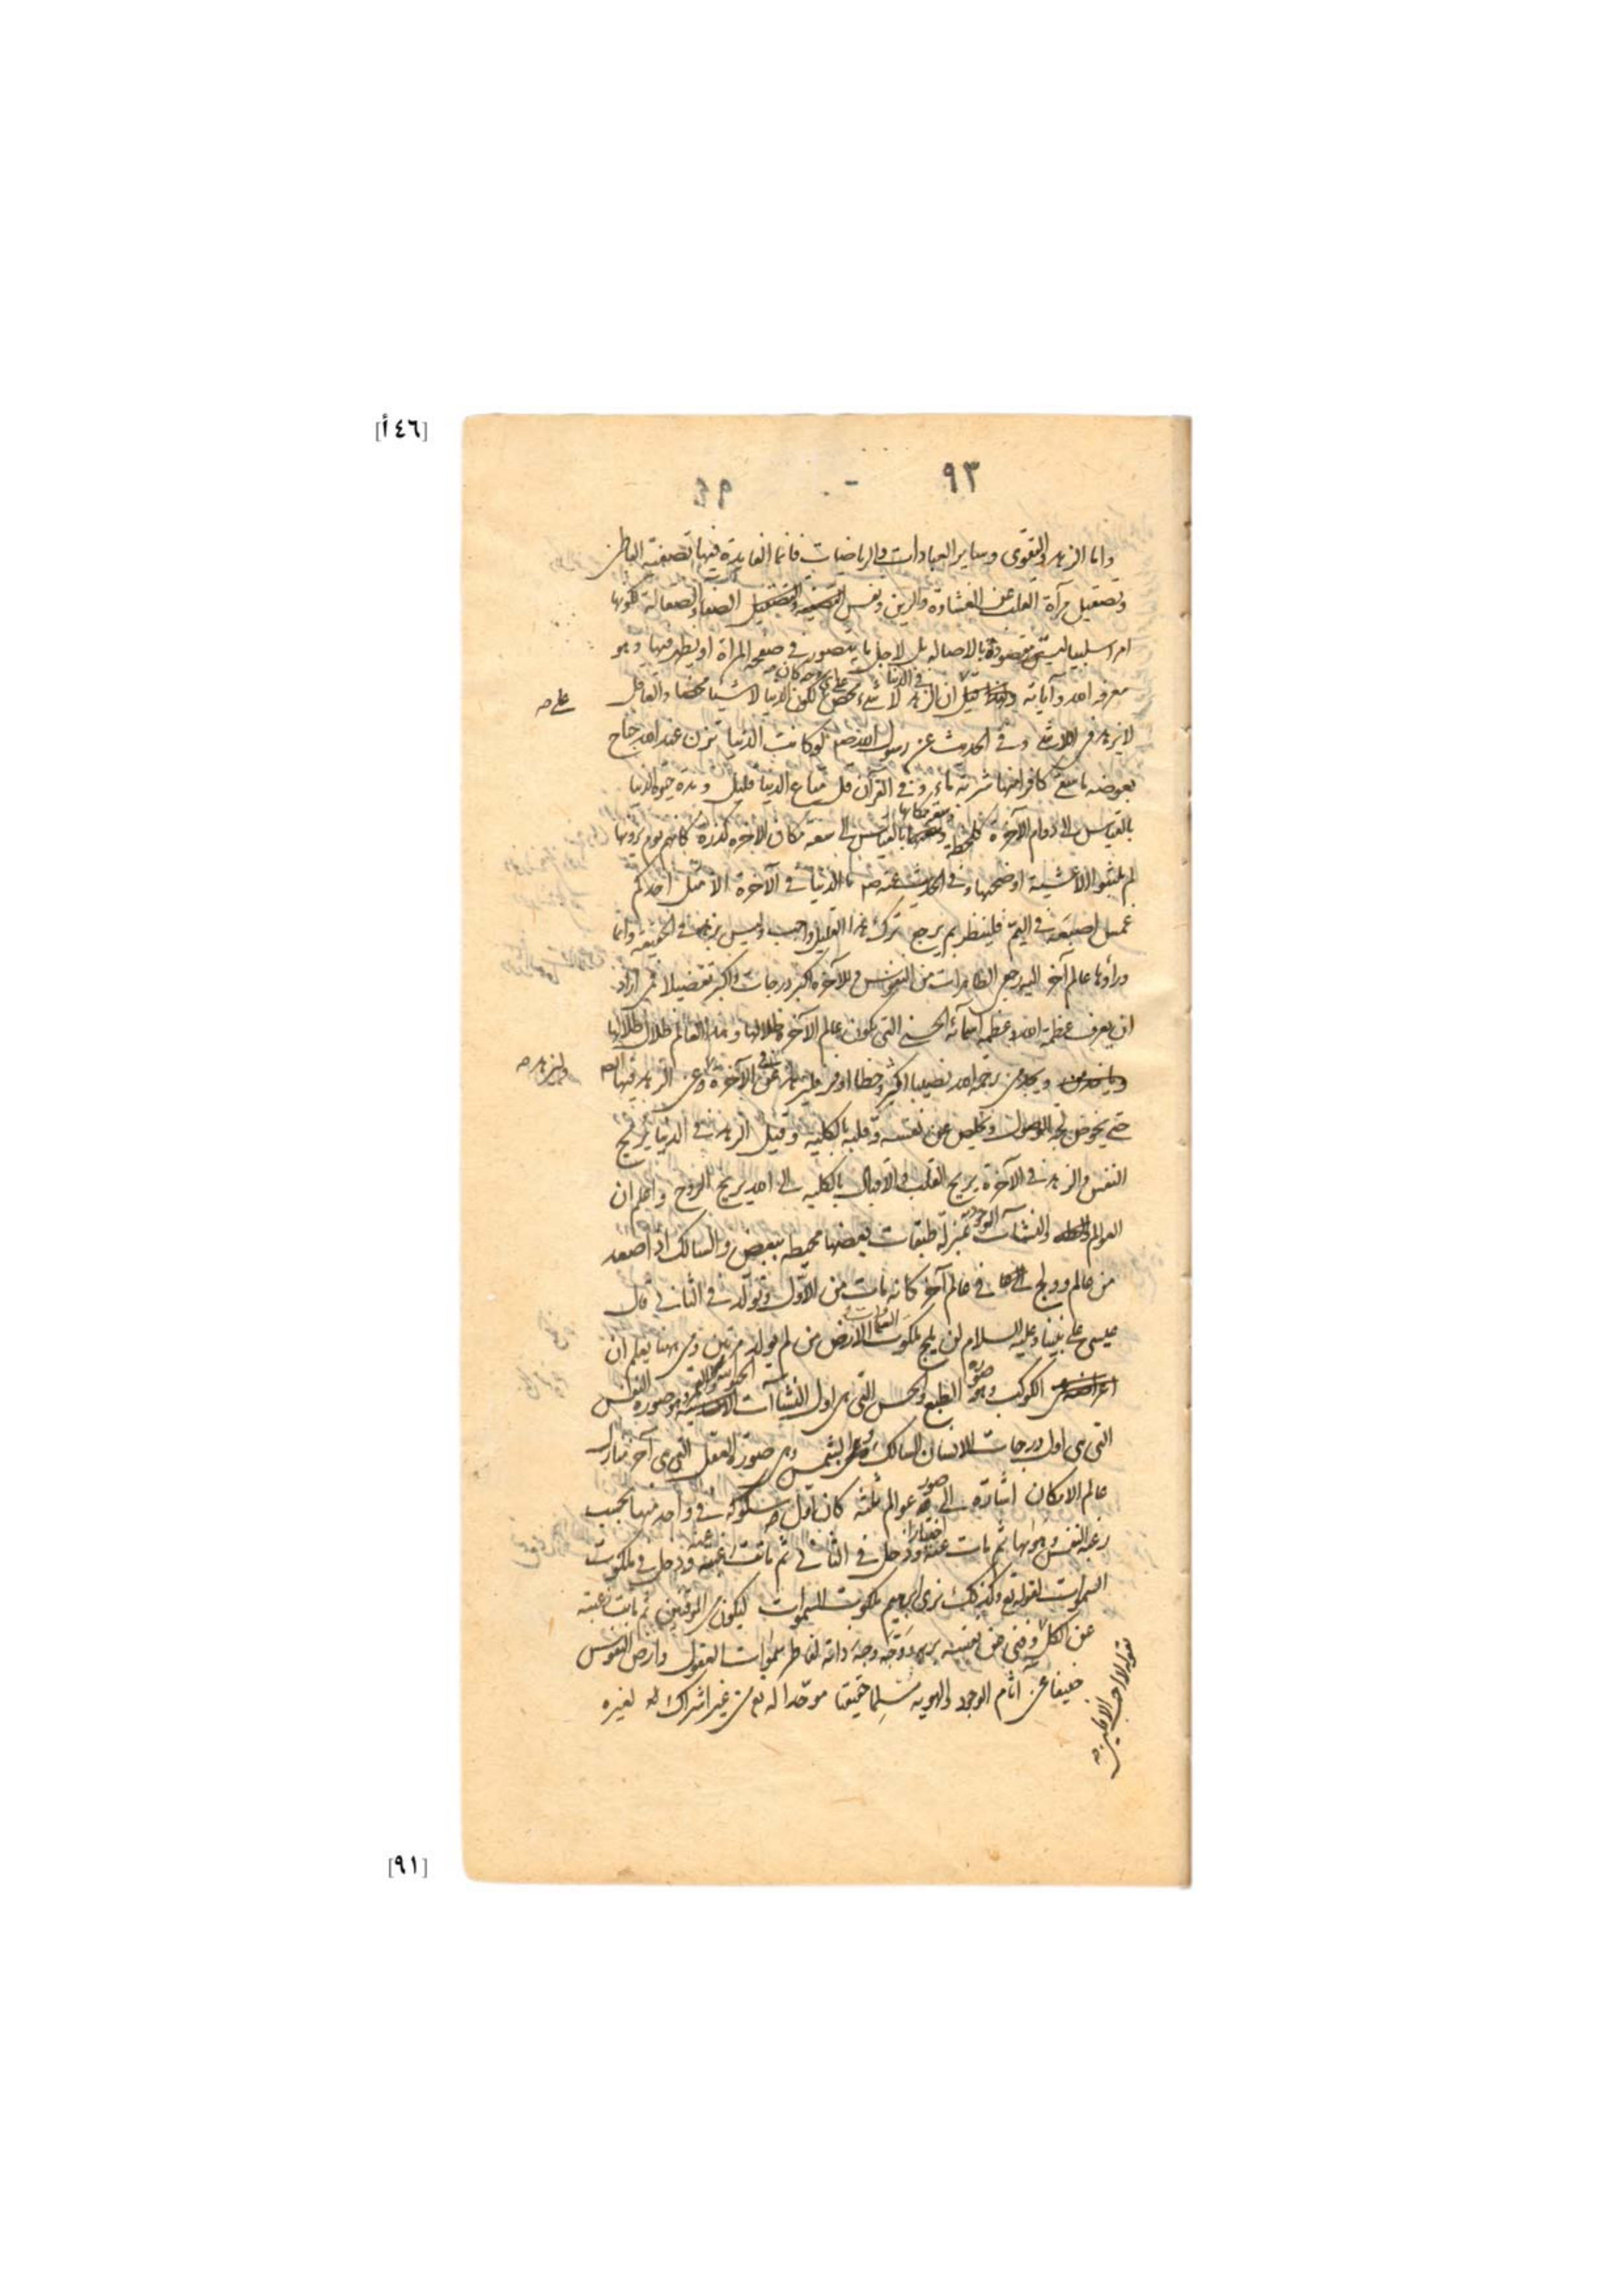 [٤٦أ]
٩٣
واما الزهد والتقوى وساير العبادات والرياضات فانما الفايدة فيها تصفية الباطن
وتصقيل مرآة القلب عن الغشاوة والرين ونفس التصفية والتصقيل الصفا والصقالة لكونها
امرا سلبيا ليست مقصودة بالاصالة بل لاجل ما يتصور في صفحة المرآة او يظهر فيها وهو
معرفه الله وآياته قيل ان الزهد في الدنيا لا شيء محض على اي وجه كان لكون الدنيا لا شيئا محضا والعاقل
على صح
لا يزهد في اللاشي وفي الحديث عن رسول الله ص لو كانت الدنيا تزن عند الله جناح
بعوضه ما سقى كافرا منها شربة ماء وفي القرآن قل متاع الدنيا قليل ومدة حيوة الدنيا
بالقياس الى دوام الآخرة كلحظة وسعة مكانها بالقياس الى سعة مكان الاخرة كذرة كانهم يوم يرونها
لم يلبثوا الا عشية او ضحيها وفي الحديث عنه ص ما الدنيا في الآخرة الا مثل احدكم
غمس اصبعه في اليم فلينظر بم يرجع ترك هذا القليل واجب وليس بزهد في الحقيقة وانما
وراؤها عالم آخر اليه رجعى الطاهرات من النفوس وللآخرة اكبر درجات واكبر تفضيلا فمن اراد
ان يعرف عظمة الله وعظمة اسمائه الحسنى التي يكون عالم الآخرة ظلالها وهذا العالم ظلال ظلالها
ويجد من رحمة الله نصيبا اكثر وحظا اوفر فليزهد في الآخرة وعن الزهد فيها
وليزهد صح
حتى يخوض لجة الوصول ويخلص عن نفسه وقلبه بالكلية وقيل الزهد في الدنيا يريح
النفس والزهد في الآخرة يريح القلب والاقبال بالكلية الى الله يريح الروح واعلم ان
العوالم والنشآت الوجودية بمنزلة طبقات بعضها محيطة ببعض والسالك اذا صعد
من عالم وولج في عالم آخر كانه مات من الاول وتولد في الثاني قال
عيسى على نبينا وعليه السلام لن يلج ملكوت السماوات والارض من لم يولد مرتين ومن ههنا يعلم ان
الكوكب وهو صورة الطبع والحس التي هي اول النشاآت والقمر وهو صورة النفس
التي هي اول درجات الانسان السالك والشمس وهي صورة العقل التي هي آخر منازل
عالم الامكان اشارة الى صور عوالم ثلثة كان اول سلوكه في واحد منها بحسب
رغبة النفس وهواها ثم مات عنه اختيارا ودخل في الثاني ثم مات عنه ودخل في ملكوت
السموات لقوله تع وكذلك نرى ابراهيم ملكوت السموات ليكون من الموقنين ثم ماتت رغبته
عن الكل وفنى عن نفسه ووجه وجه ذاته لفاطر سموات العقول وارض النفوس
حنيفا عن اثام الوجود والهوية مسلما حقيقا موحدا له تع من غير اشراك له لغيره
بقوله لا احب الآفلين صح
[٩١]